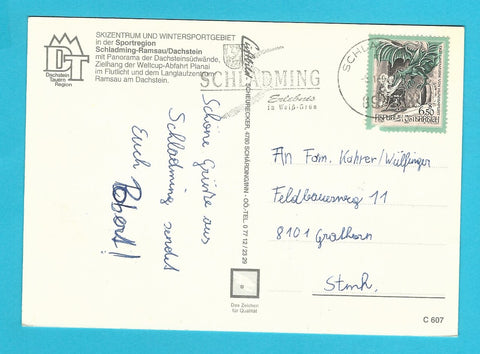 SKIZENTRUM UND WINTERSPORTGEBIET
in der Sportregion
Schladming-Ramsau/Dachstein
mit Panorama der Dachsteinsüdwände,
Zielhang der Weltcup-Abfahrt Planai
im Flutlicht und dem Langlaufzentrum
Ramsau am Dachstein.
DT
Dachstein
Tauern
Region
SCHLADMING
Erlebnis
in Weiß-Grün
SCHLAD
6.50
REPUBLIK ÖSTERREICH
SCHEURECKER, 4780 SCHÄRDING/INN - OÖ.-TEL. 0 77 12 / 23 29
Schöne Grüße aus
Schladming sendet
Euch
Robert!
An Fam. Kahrer/Wülfinger
Feldbauernweg 11
8101 Gratkorn
Stmk.
Das Zeichen
für Qualität
C 607